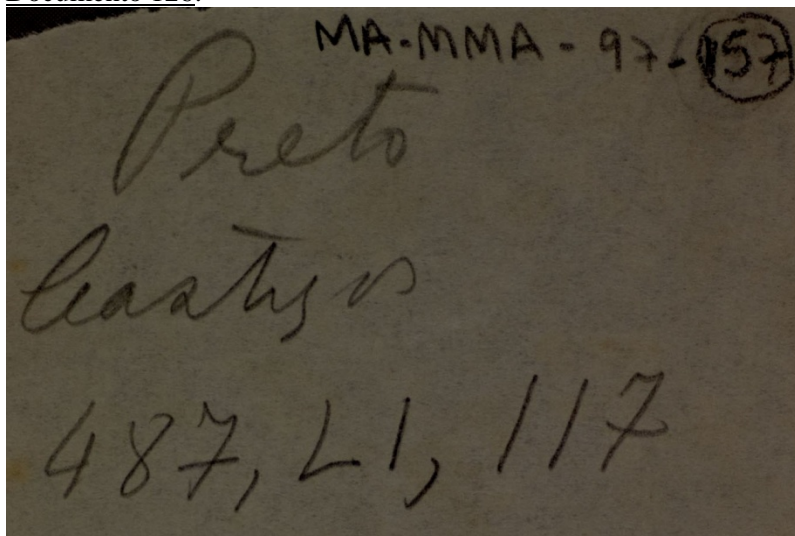 MA-MMA-97-157
Preto
Castigos
487, LI, 117